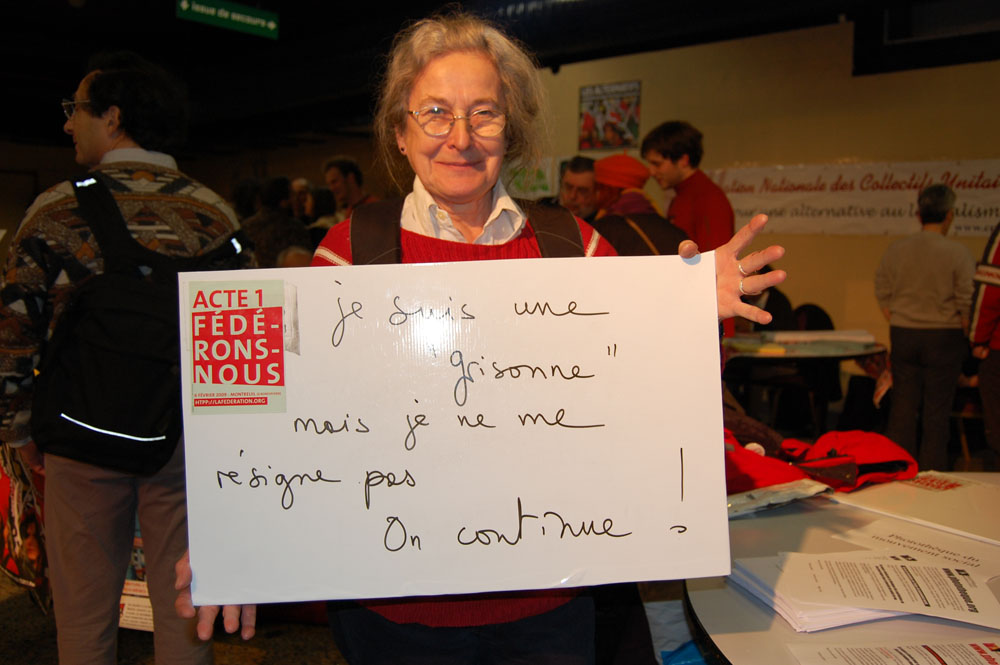 issue de secours
ACTE 1
FÉDÉ-
RONS-
NOUS
HTPP://LAFEDERATION.ORG
je suis une
"grisonne"
mais je ne me
résigne pas
On continue !
Nationale des Collectifs Unitai
une alternative au
Photothèque du
mouvement social